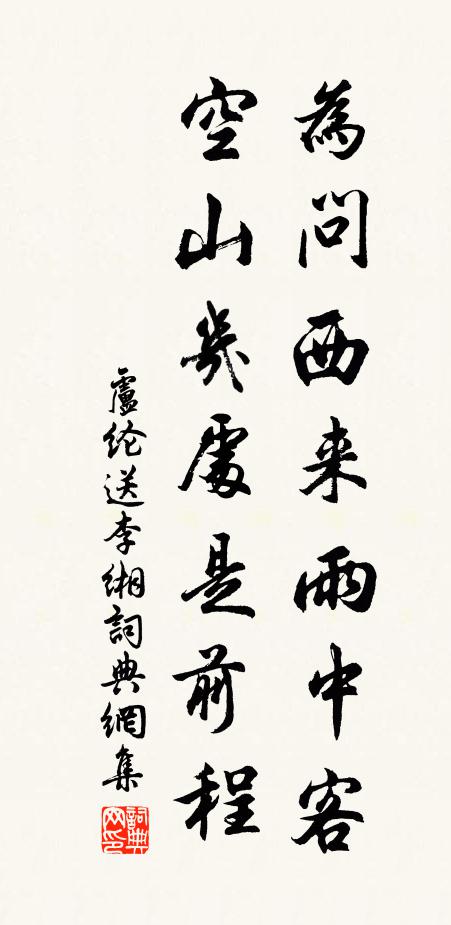 為問西来雨中客
空山幾處是前程
盧纶送李缃詞典網集
詞典網印